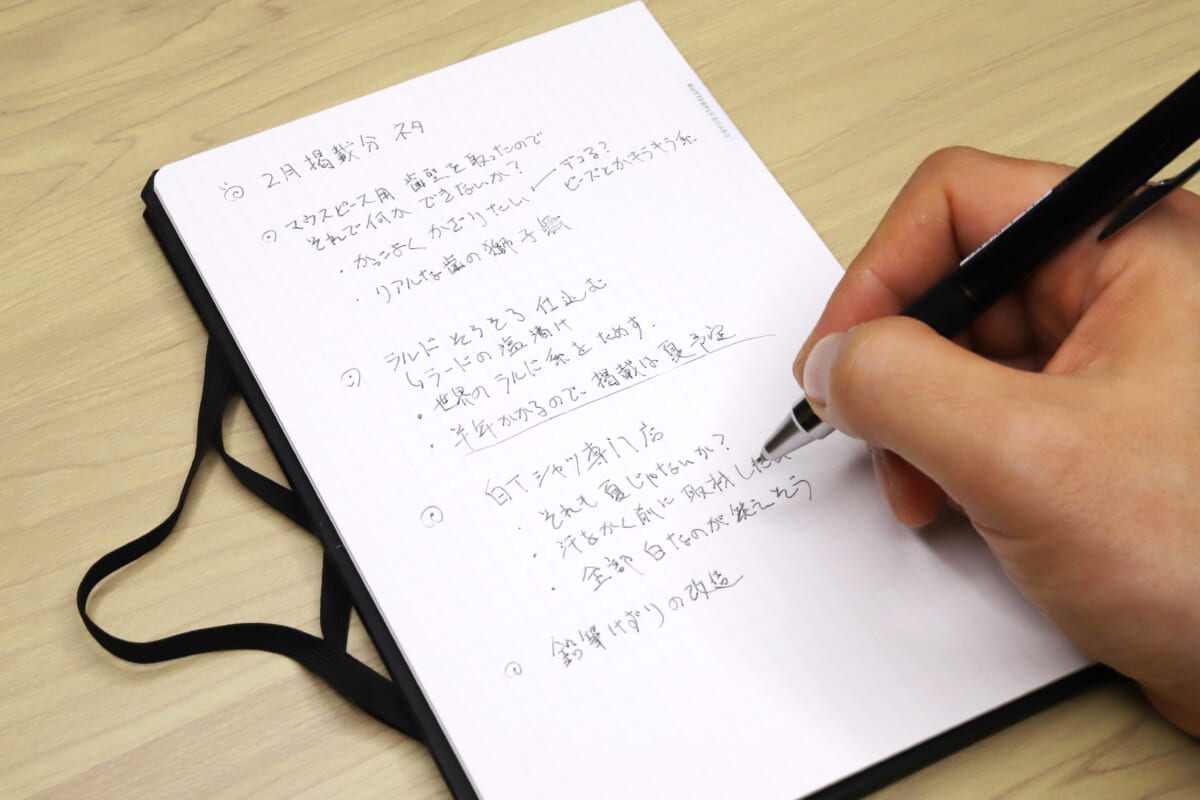 BUTTERFLYBOARD
2月掲載分 ネタ
マウスピース用 歯型を取ったので
それで何かできないか?
・かっこよく かざりたい ← デコる?
ビーズとかキラキラ系
・リアルな歯の獅子舞
ラルド そろそろ 仕込む
↳ラードの塩漬け
・世界のラルド系をためす.
・半年かかるので、掲載は夏予定
白Tシャツ専門店
・それも夏じゃないか?
・汗をかく前に取材し
・全部白なのが笑えそう
鉛筆けずりの改造